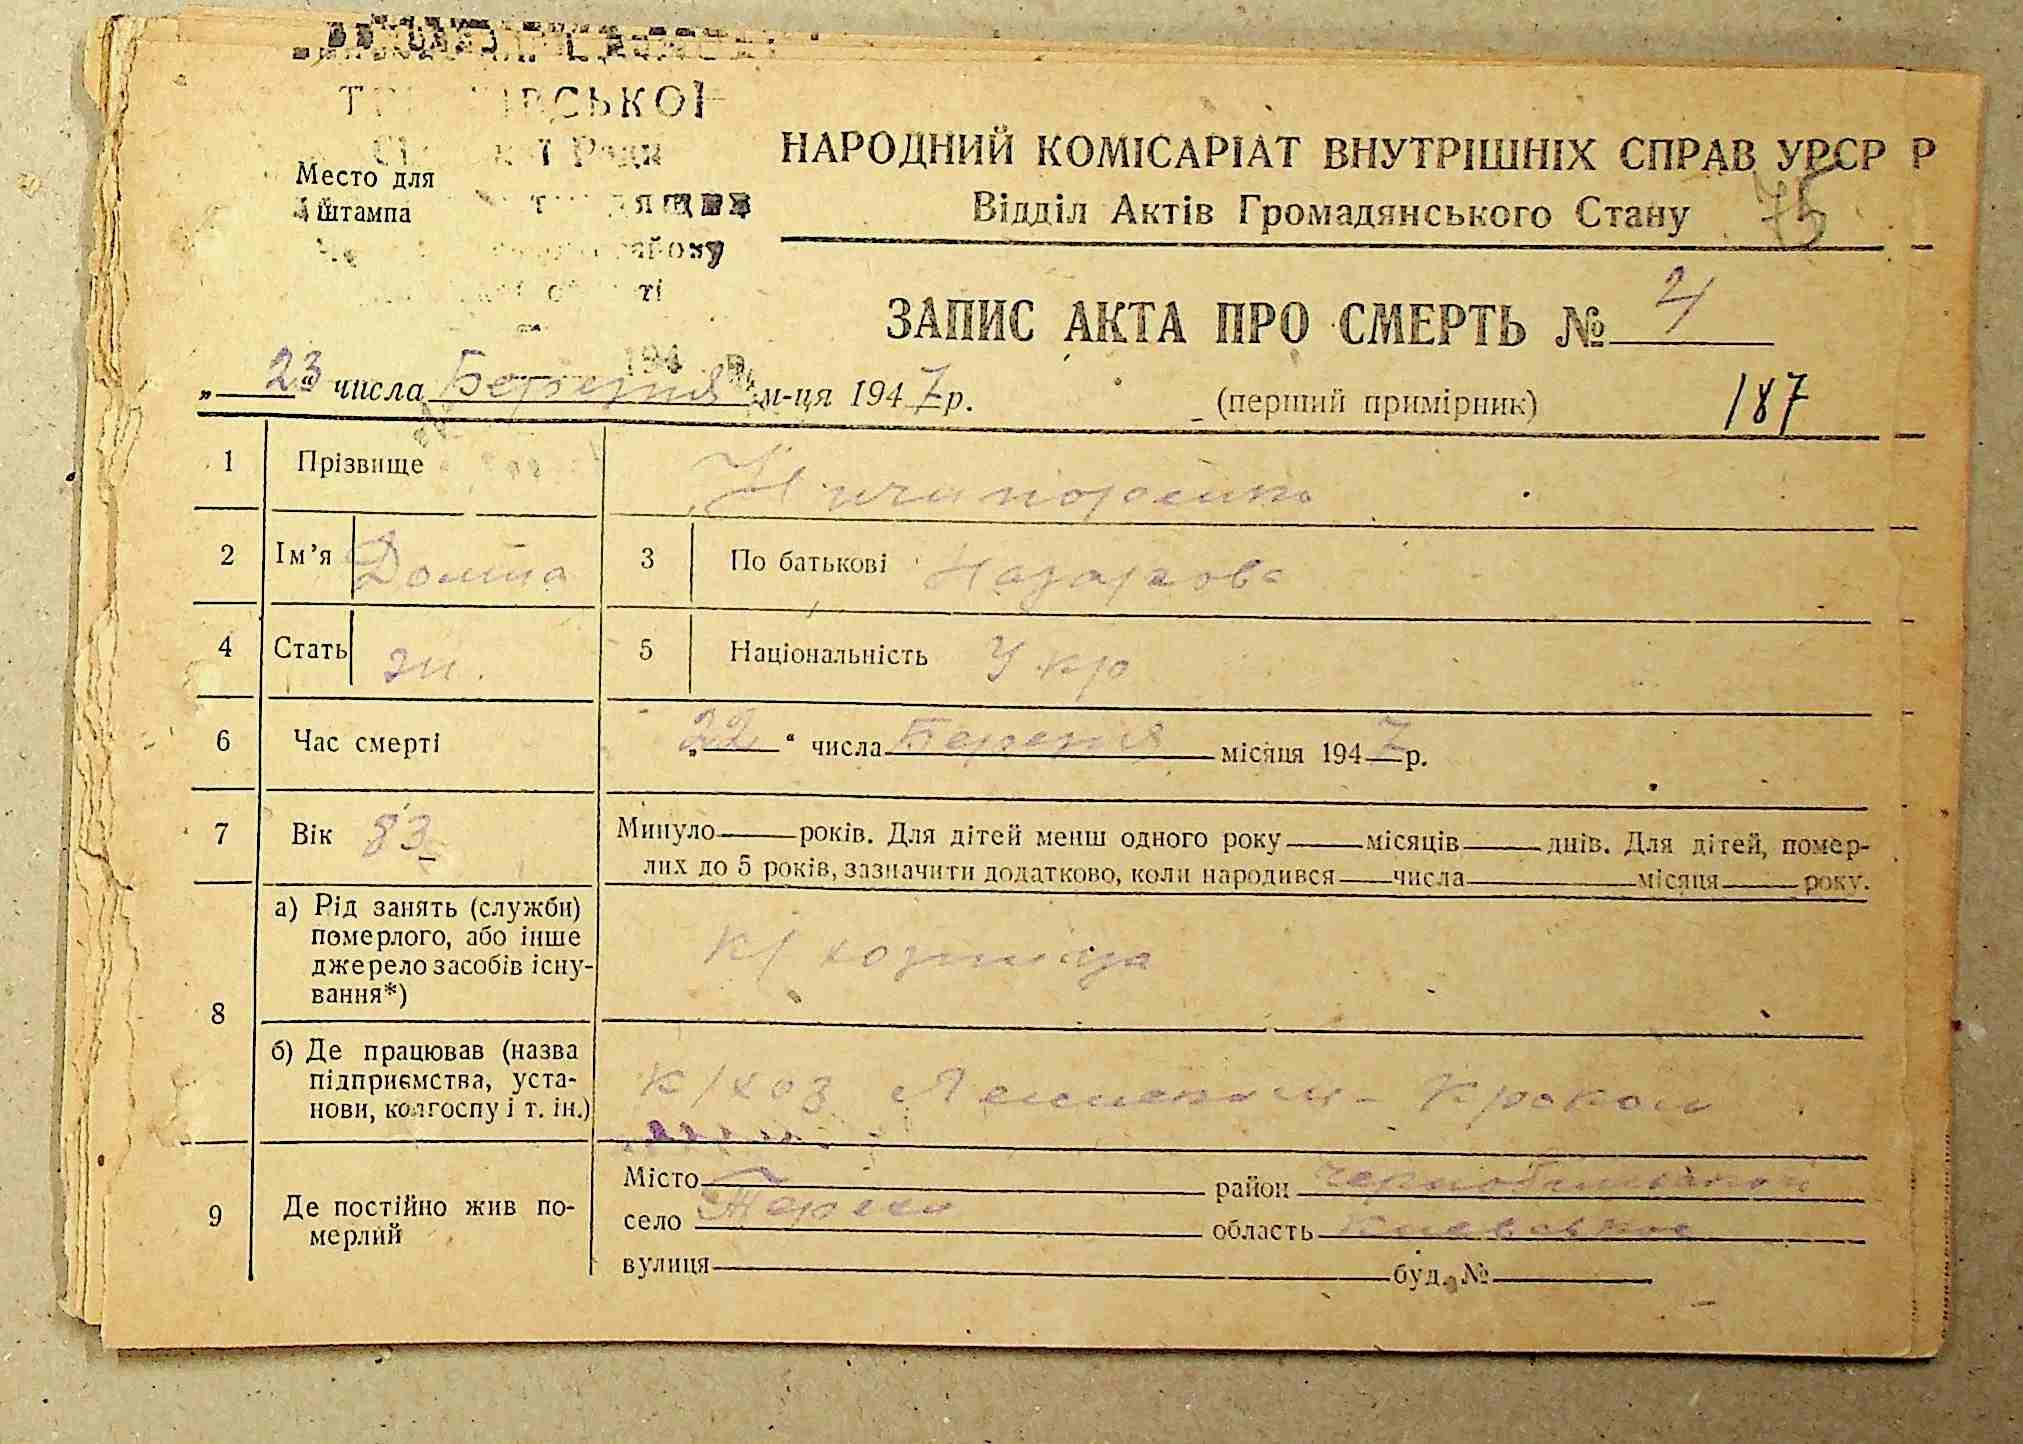 Ради
Место для
штампа
району
НАРОДНИЙ КОМІСАРІАТ ВНУТРІШНІХ СПРАВ УРСР Р
Відділ Актів Громадянського Стану
75
ЗАПИС АКТА ПРО СМЕРТЬ № 4
194
„ 23 " числа Березня м-ця 1947 р.
(перший примірник)
187
1 Прізвище Ничипоренко
2 Ім’я Домна 3 По батькові Назарова
4 Стать ж. 5 Національність Укр
6 Час смерті „22“ числа Березня місяця 1947 р.
7 Вік 83 Минуло років. Для дітей менш одного року місяців днів. Для дітей, помер-
лих до 5 років, зазначити додатково, коли народився числа місяця року.
8 а) Рід занять (служби)
померлого, або інше
джерело засобів існу-
вання*)
к/хозниця
б) Де працював (назва
підприємства, уста-
нови, колгоспу і т. ін.)
к/хоз
9 Де постійно жив по-
мерлий
Місто
район
село Терехи
область Киевьское
вулиця буд. №